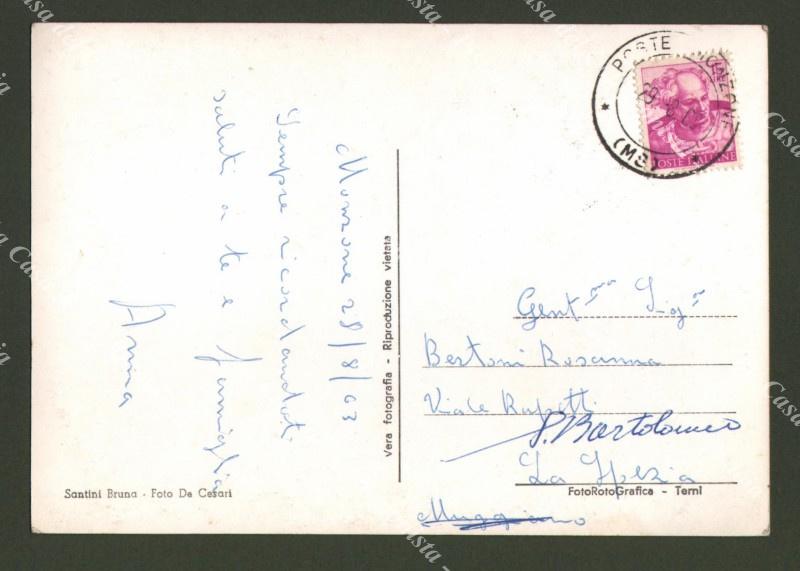 Monzone 28/8/63
Sempre ricordandoti
saluti a te e famiglia
Anna
Vera fotografia - Riproduzione vietata
Santini Bruna - Foto De Cesari
POSTE MONZONE
29-8-63
(MS)
POSTE ITALIANE
Gent.ma Sig.na
Bertoni Rosanna
Viale
S. Bartolomeo
La Spezia
FotoRotoGrafica - Terni
Muggiano